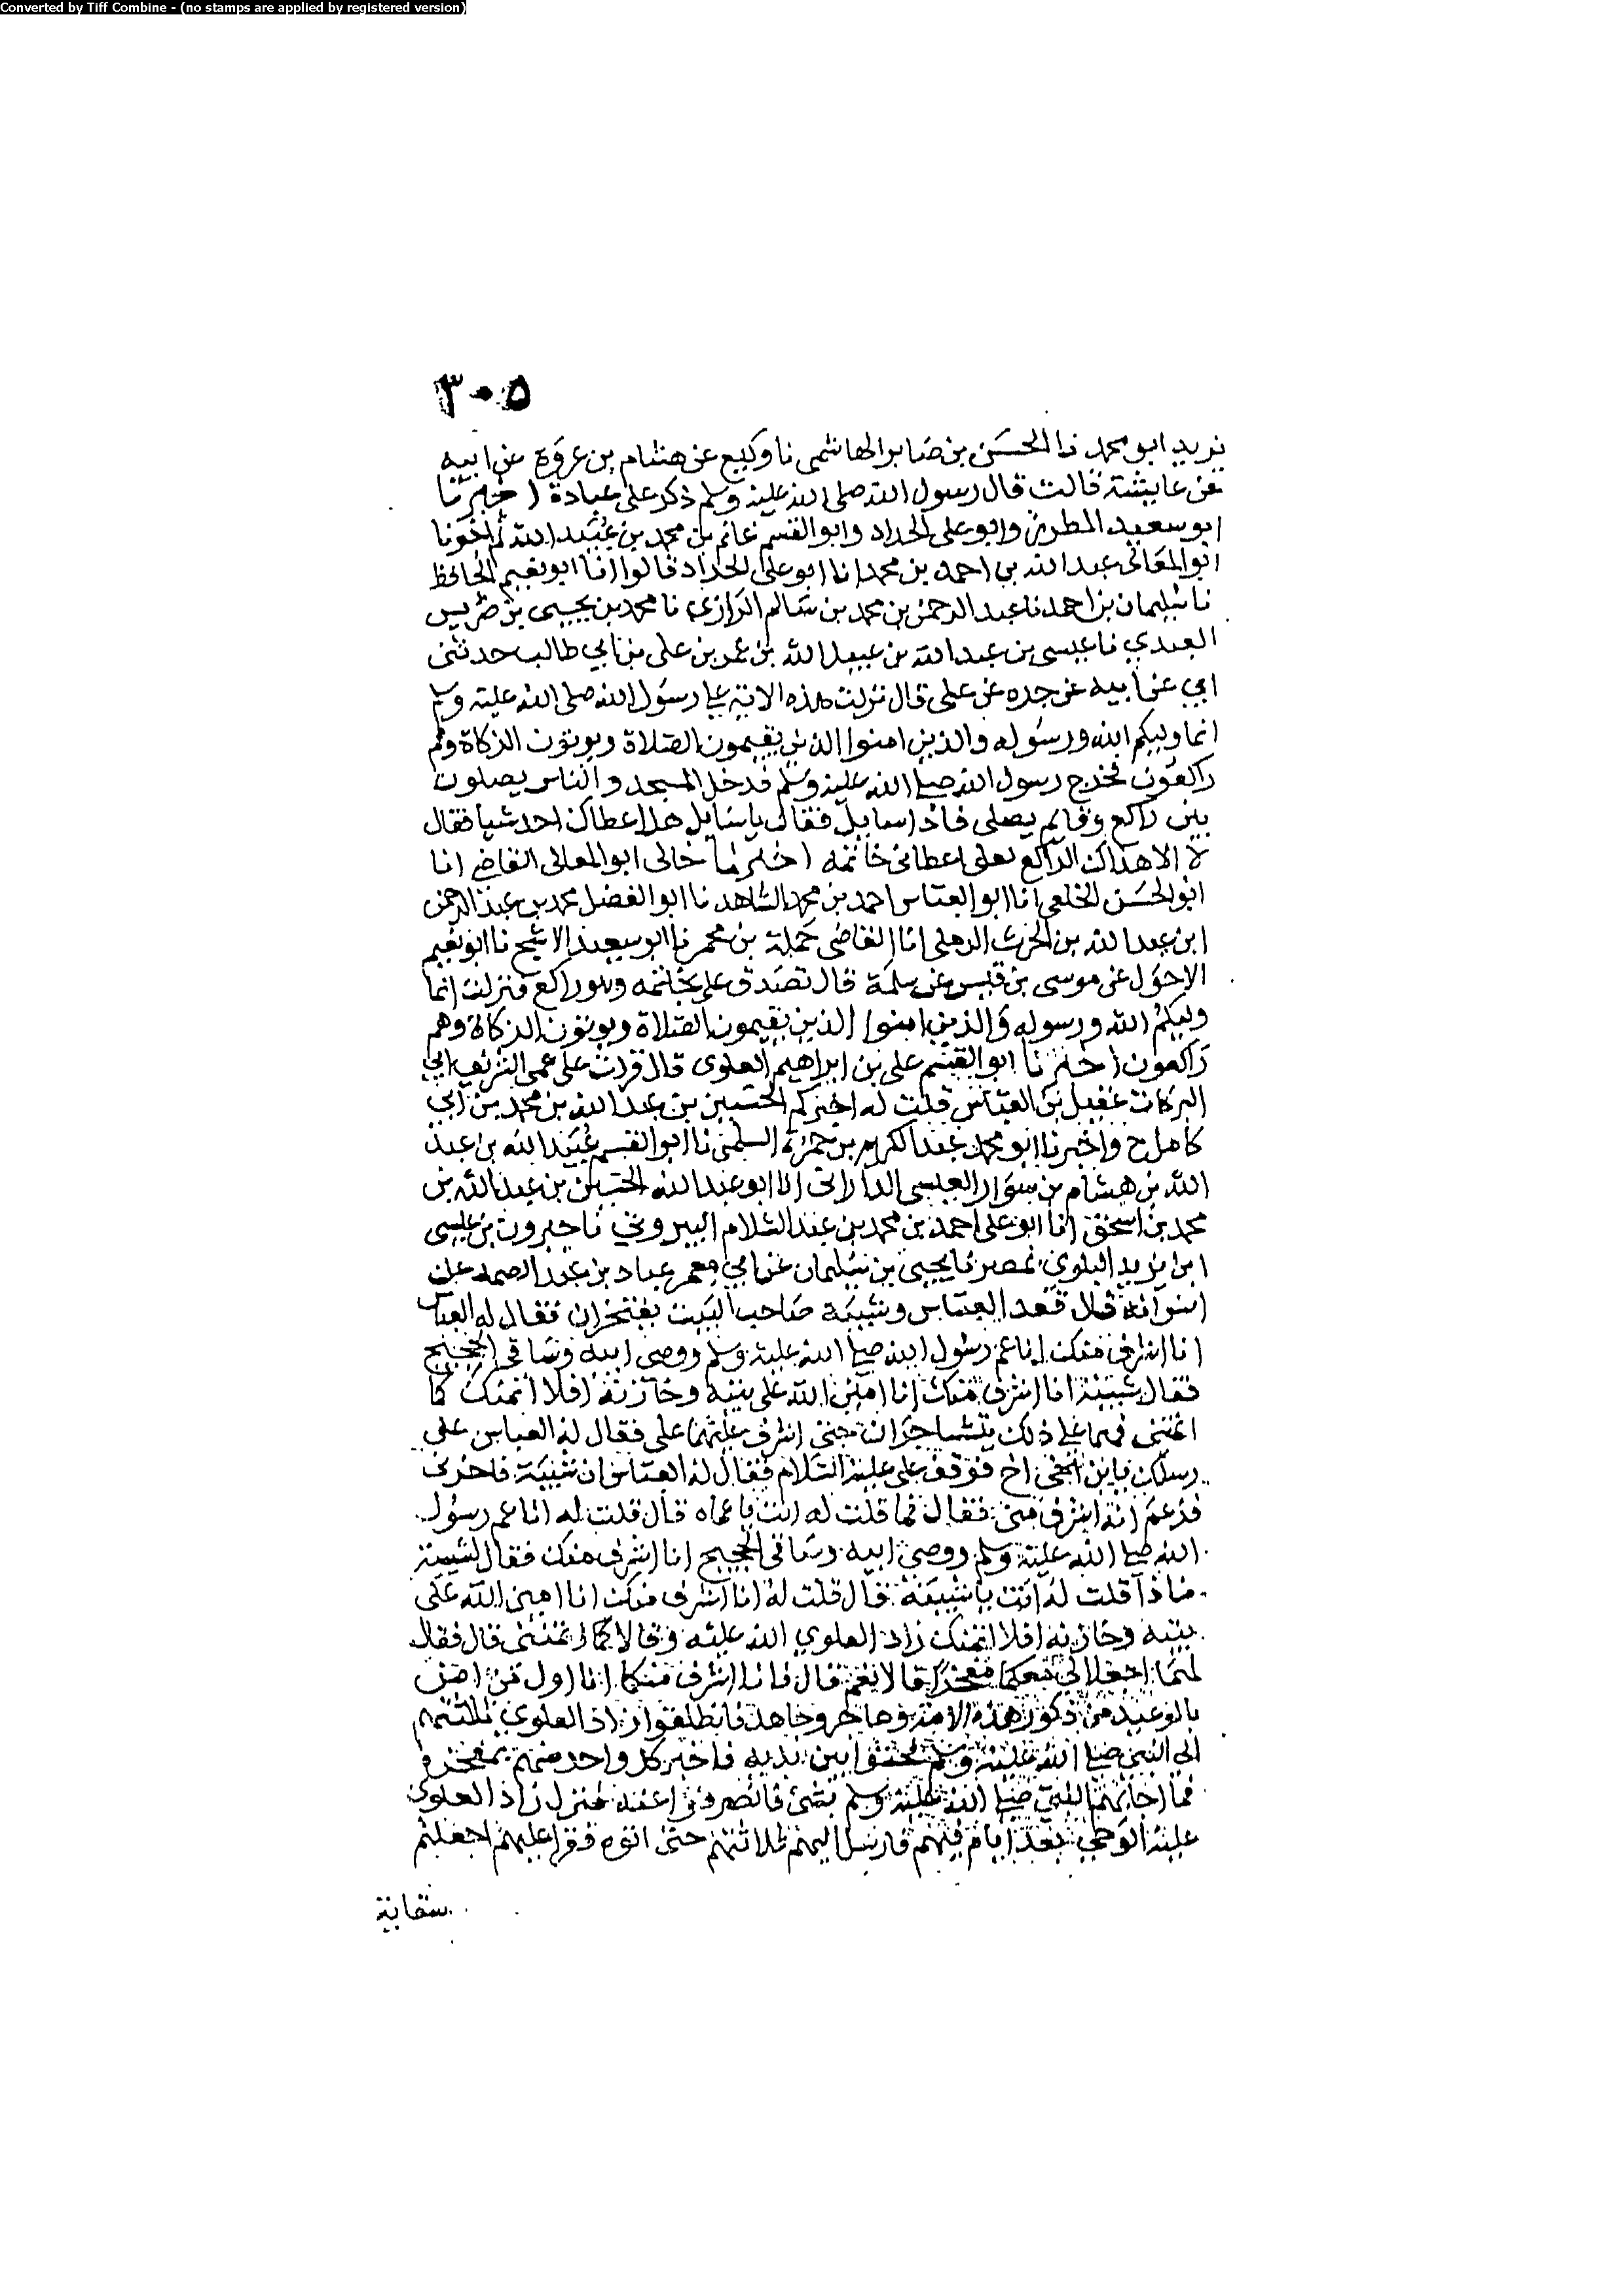 Converted by Tiff Combine - (no stamps are applied by registered version)
٣٠٥
يزيد ابو محمد نا الحسن بن صابر الهاشمى نا وكيع عن هشام بن عروة عن ابيه
عن عايشة قالت قال رسول الله صلى الله عليه وسلم ذكر على عبادة اخبرنا
ابو سعيد المطرز وابو على الحداد وابو القسم غانم بن محمد بن عبيد الله ثم اخبرنا
ابو المعالى عبد الله بن احمد بن محمد انا ابو على الحداد قالوا انا ابو نعيم الحافظ
نا سليمان بن احمد نا عبد الرحمن بن محمد بن سالم الرازي نا محمد بن يحيى بن ضريس
العبدي نا عيسى بن عبد الله بن عبيد الله بن عمر بن على بن ابي طالب حدثنى
ابي عن ابيه عن جده عن على قال نزلت هذه الاية على رسول الله صلى الله عليه وسلم
انما وليكم الله ورسوله والذين امنوا الذين يقيمون الصلاة ويوتون الزكاة وهم
راكعون فخرج رسول الله صلى الله عليه وسلم فدخل المسجد والناس يصلون
بين راكع وقايم يصلى فاذا سايل فقال يا سايل هل اعطاك احد شيا فقال
لا الا هذاك الراكع لعلى اعطانى خاتمه اخبرنا خالى ابو المعالى القاضى انا
ابو الحسن الخلعى انا ابو العباس احمد بن محمد الشاهد نا ابو الفضل محمد بن عبد الرحمن
ابن عبد الله بن الحرث الرملى انا القاضى حملة بن محمر نا ابو سعيد الاشج نا ابو نعيم
الاحول عن موسى بن قيس عن سلمة قال تصدق على بخاتمه وهو راكع فنزلت انما
وليكم الله ورسوله والذين امنوا الذين يقيمون الصلاة ويوتون الزكاة وهم
راكعون اخبرنا ابو القسم على بن ابراهيم العلوى قال قرات على عمى الشريف ابي
البركات عقيل بن العباس قلت له اخبركم الحسين بن عبد الله بن محمد بن ابي
كامل ح واخبرنا ابو محمد عبد الكريم بن حمزة السلمى نا ابو القسم عبيد الله بن عبد
الله بن هشام بن سوار العبسى الدارانى انا ابو عبد الله الحسين بن عبد الله بن
محمد بن اسحق انا ابو على احمد بن محمد بن عبد السلام البيروتي نا خبرون بن عيسى
ابن يزيد البلوي بمصر نا يحيى بن سليمان عن ابي معمر عباد بن عبد الصمد عن
انس انه قال قعد العباس وشيبة صاحب البيت يفتخران فقال له العباس
انا اشرف منك انا عم رسول الله صلى الله عليه وسلم ووصى ابيه وساقى الحجيج
فقال شيبة انا اشرف منك انا امين الله على بيته وخازنه افلا ائتمنك كما
ائتمننى فهما على ذلك يتشاجران حتى اشرف عليهما على فقال له العباس على
رسلك يا ابن اخى فوقف على عليه السلام فقال له العباس ان شيبة فاخرنى
فزعم انه اشرف منى فقال فما قلت له انت يا عماه قال قلت له انا عم رسول
الله صلى الله عليه وسلم ووصى ابيه وساقى الحجيج انا اشرف منك فقال لشيبة
ماذا قلت له انت يا شيبة قال قلت له انا اشرف منك انا امين الله على
بيته وخازنه افلا ائتمنك زاد العلوي الله عليه وقالا كما ائتمننى قال فقال
لهما اجعلا لي معكما مفخرا قالا نعم قال فانا اشرف منكما انا اول من امن
بالوعيد من ذكور هذه الامة وهاجر وجاهد فانطلقوا زاد العلوي ثلثتهم
الى النبى صلى الله عليه وسلم فجثوا بين يديه فاخبر كل واحد منهم بمفخره
فما اجابهم النبي صلى الله عليه وسلم بشئ فانصرفوا عنه فنزل زاد العلوى
عليه الوحي بعد ايام فيهم فارسل اليهم ثلاثتهم حتى اتوه فقرا عليهم اجعلتم
سقاية